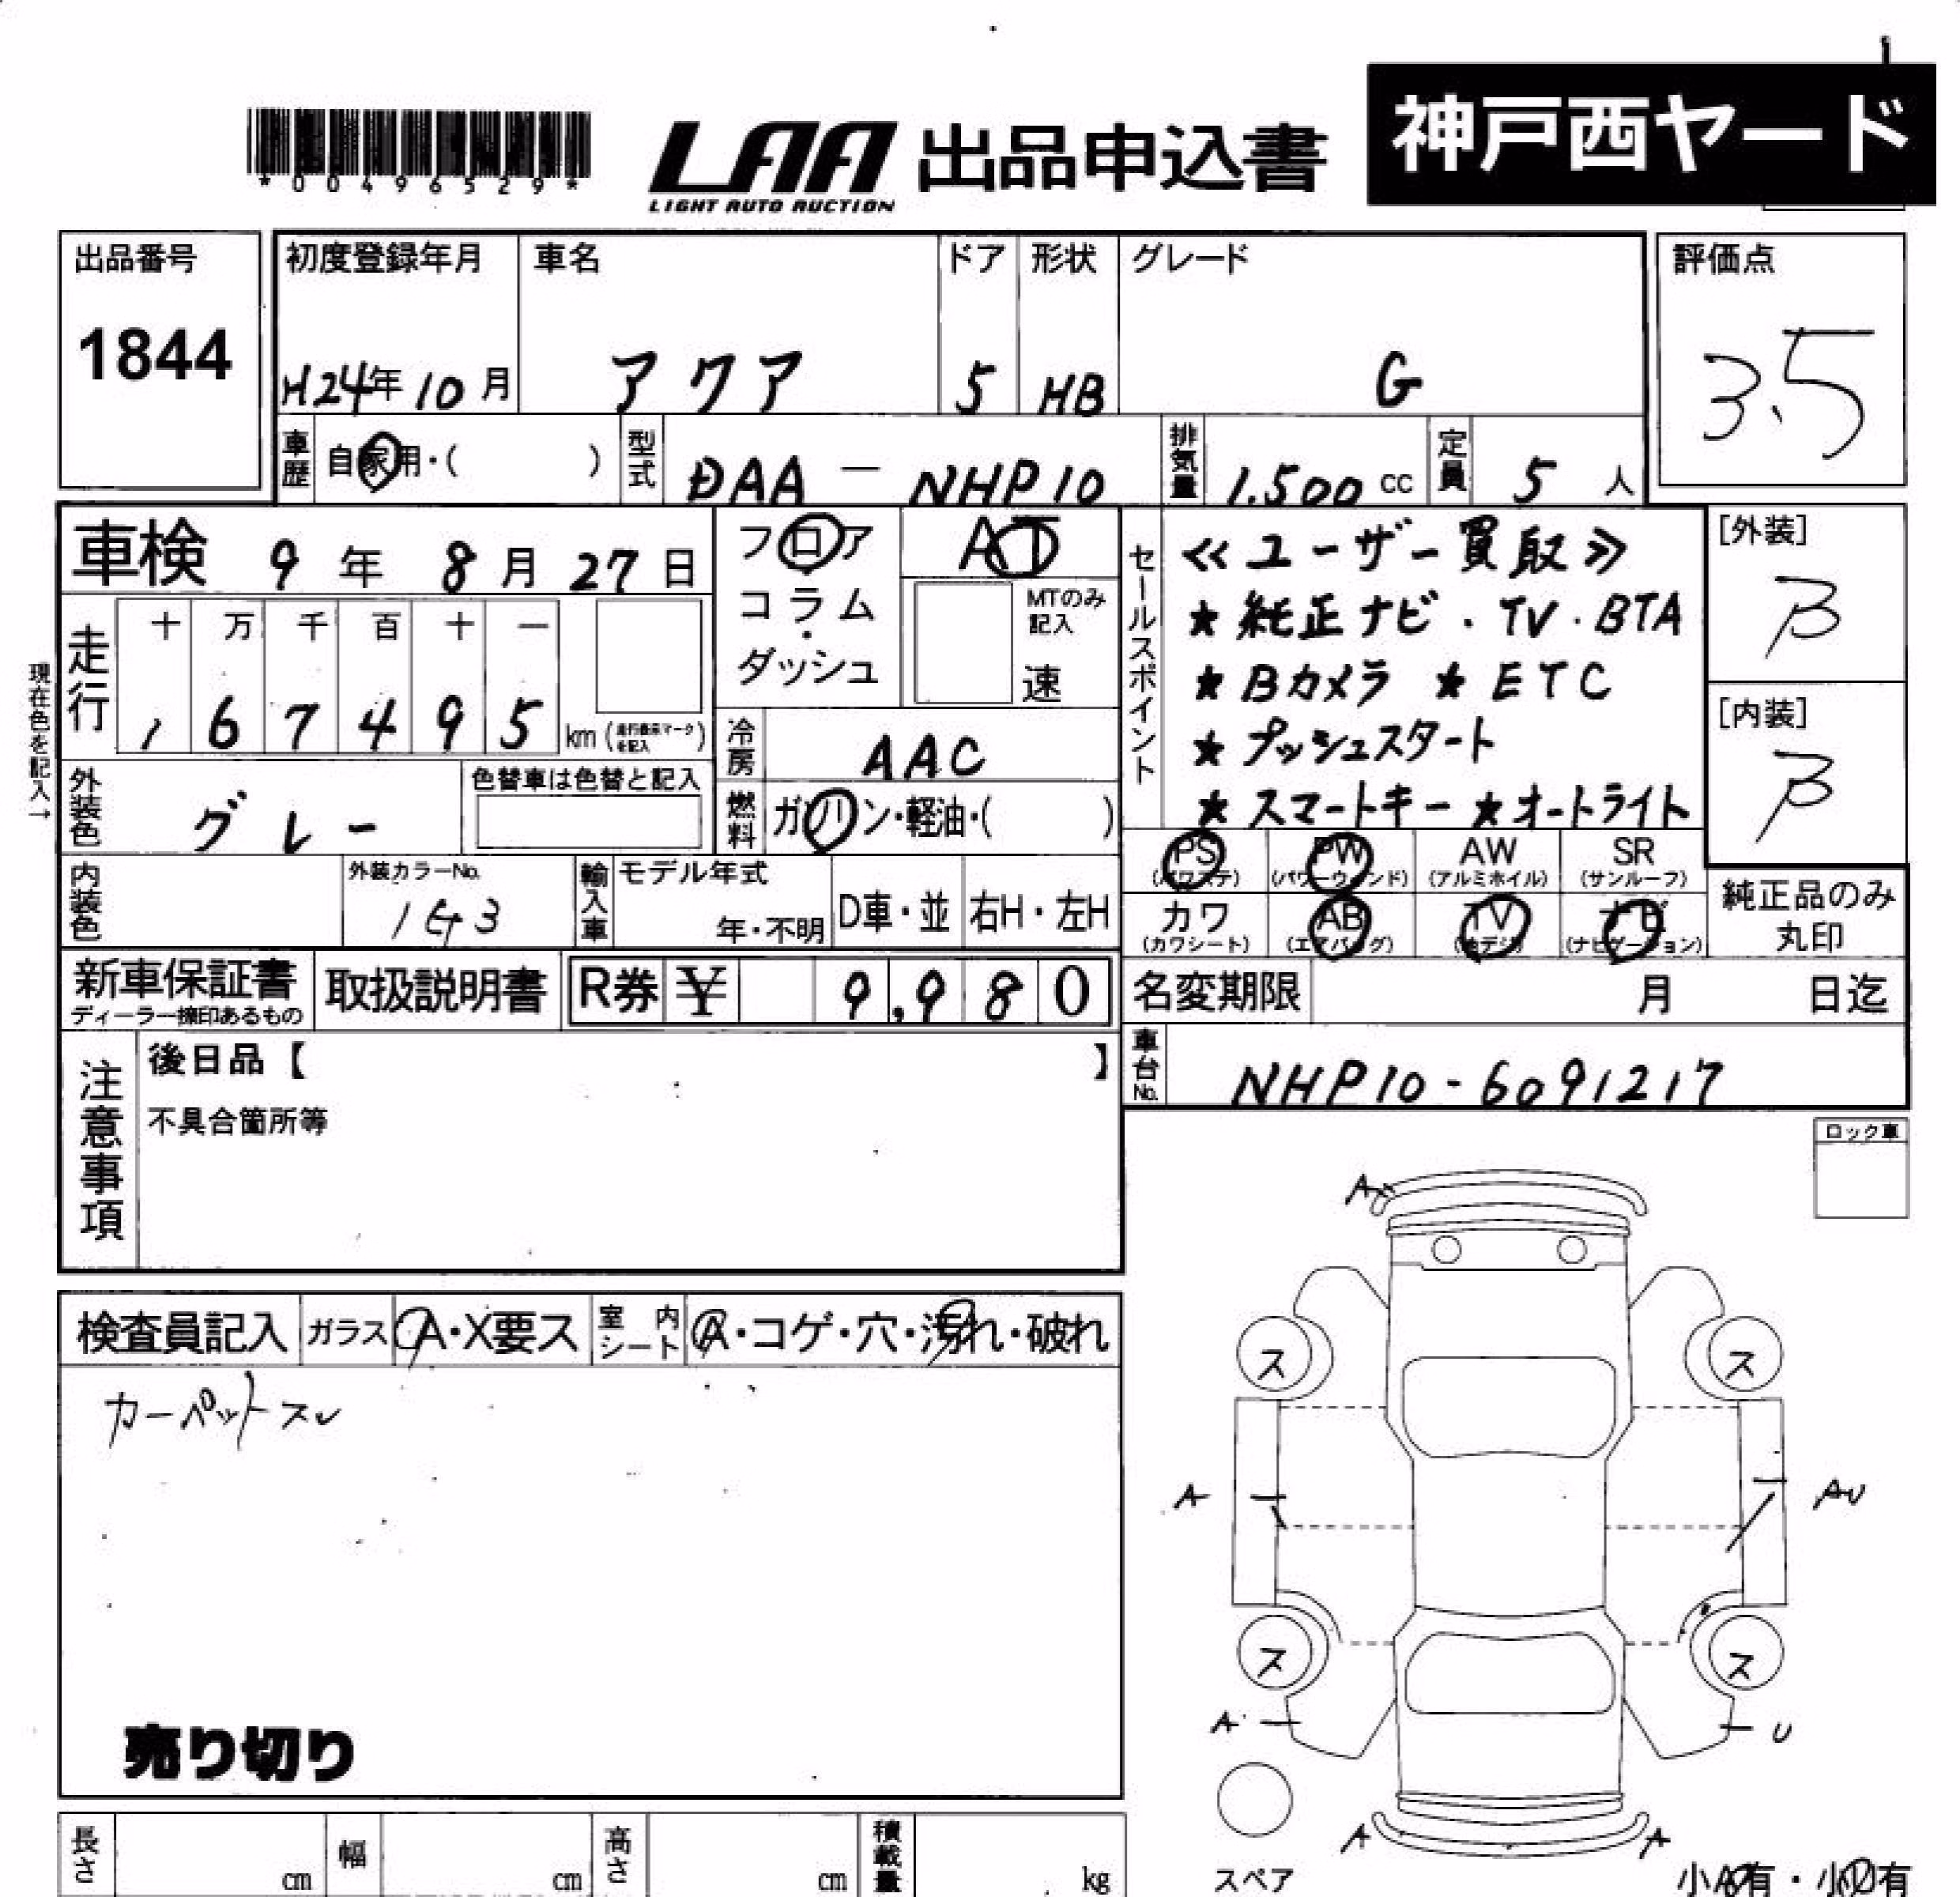 神戸西ヤード
*00496529*
LAA 出品申込書
LIGHT AUTO AUCTION
出品番号
1844
初度登録年月
H24年10月
車名
アクア
ドア
5
形状
HB
グレード
G
評価点
3.5
車歴 自家用・( )
型式 DAA-NHP10
排気量 1,500cc
定員 5人
車検 9年8月27日
フロア
コラム
・
ダッシュ
AT
MTのみ
記入
速
セールスポイント
≪ユーザー買取≫
★純正ナビ・TV・BTA
★Bカメラ ★ETC
★プッシュスタート
★スマートキー ★オートライト
[外装]
B
[内装]
B
現在色を記入→
走行
十 万 千 百 十 一
1 6 7 4 9 5 km (走行表示マークを記入)
冷房 AAC
外装色 グレー
色替車は色替と記入
燃料 ガソリン・軽油・( )
内装色
外装カラーNo.
1G3
輸入車
モデル年式
年・不明
D車・並
右H・左H
PS AW SR PW
(パワステ) (パワーウィンド) (アルミホイル) (サンルーフ)
カワ AB TV ナビ
(カワシート) (エアバッグ) (地デジ) (ナビゲーション)
純正品のみ
丸印
新車保証書
ディーラー捺印あるもの
取扱説明書
R券 ¥ 9,980
名変期限 月 日迄
車台No. NHP10-6091217
注意事項
後日品【 】
不具合箇所等
ロック車
検査員記入
ガラス A・X要ス
室内シート A・コゲ・穴・汚れ・破れ
カーペットスレ
売り切り
A
ス ス
A AU
ス ス
A U
A A
スペア
小A有・小U有
長さ cm
幅 cm
高さ cm
積載量 kg